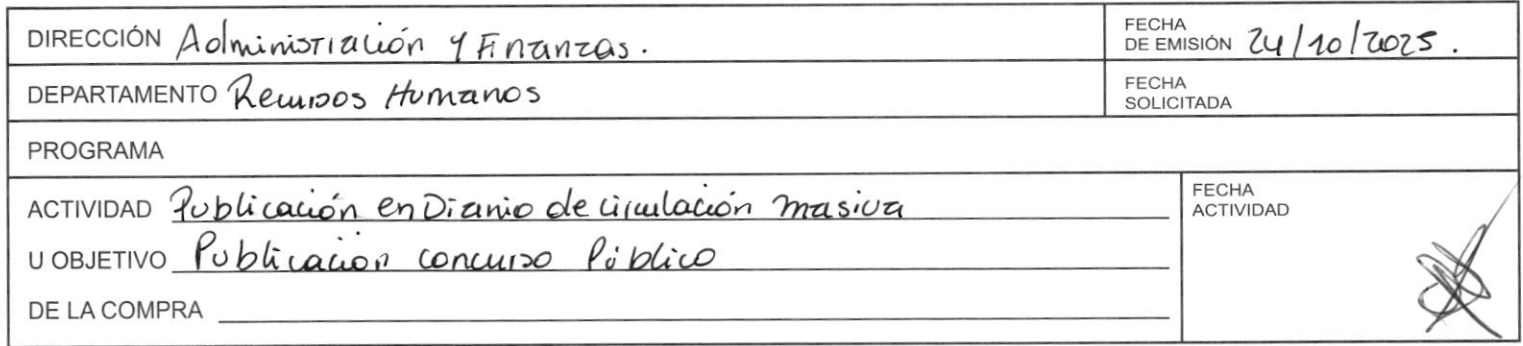 DIRECCIÓN Administración y Finanzas.
FECHA
DE EMISIÓN 24/10/2025.
DEPARTAMENTO Recursos Humanos
FECHA
SOLICITADA
PROGRAMA
ACTIVIDAD Publicación en Diario de circulación masiva
U OBJETIVO Publicación concurso Público
DE LA COMPRA
FECHA
ACTIVIDAD